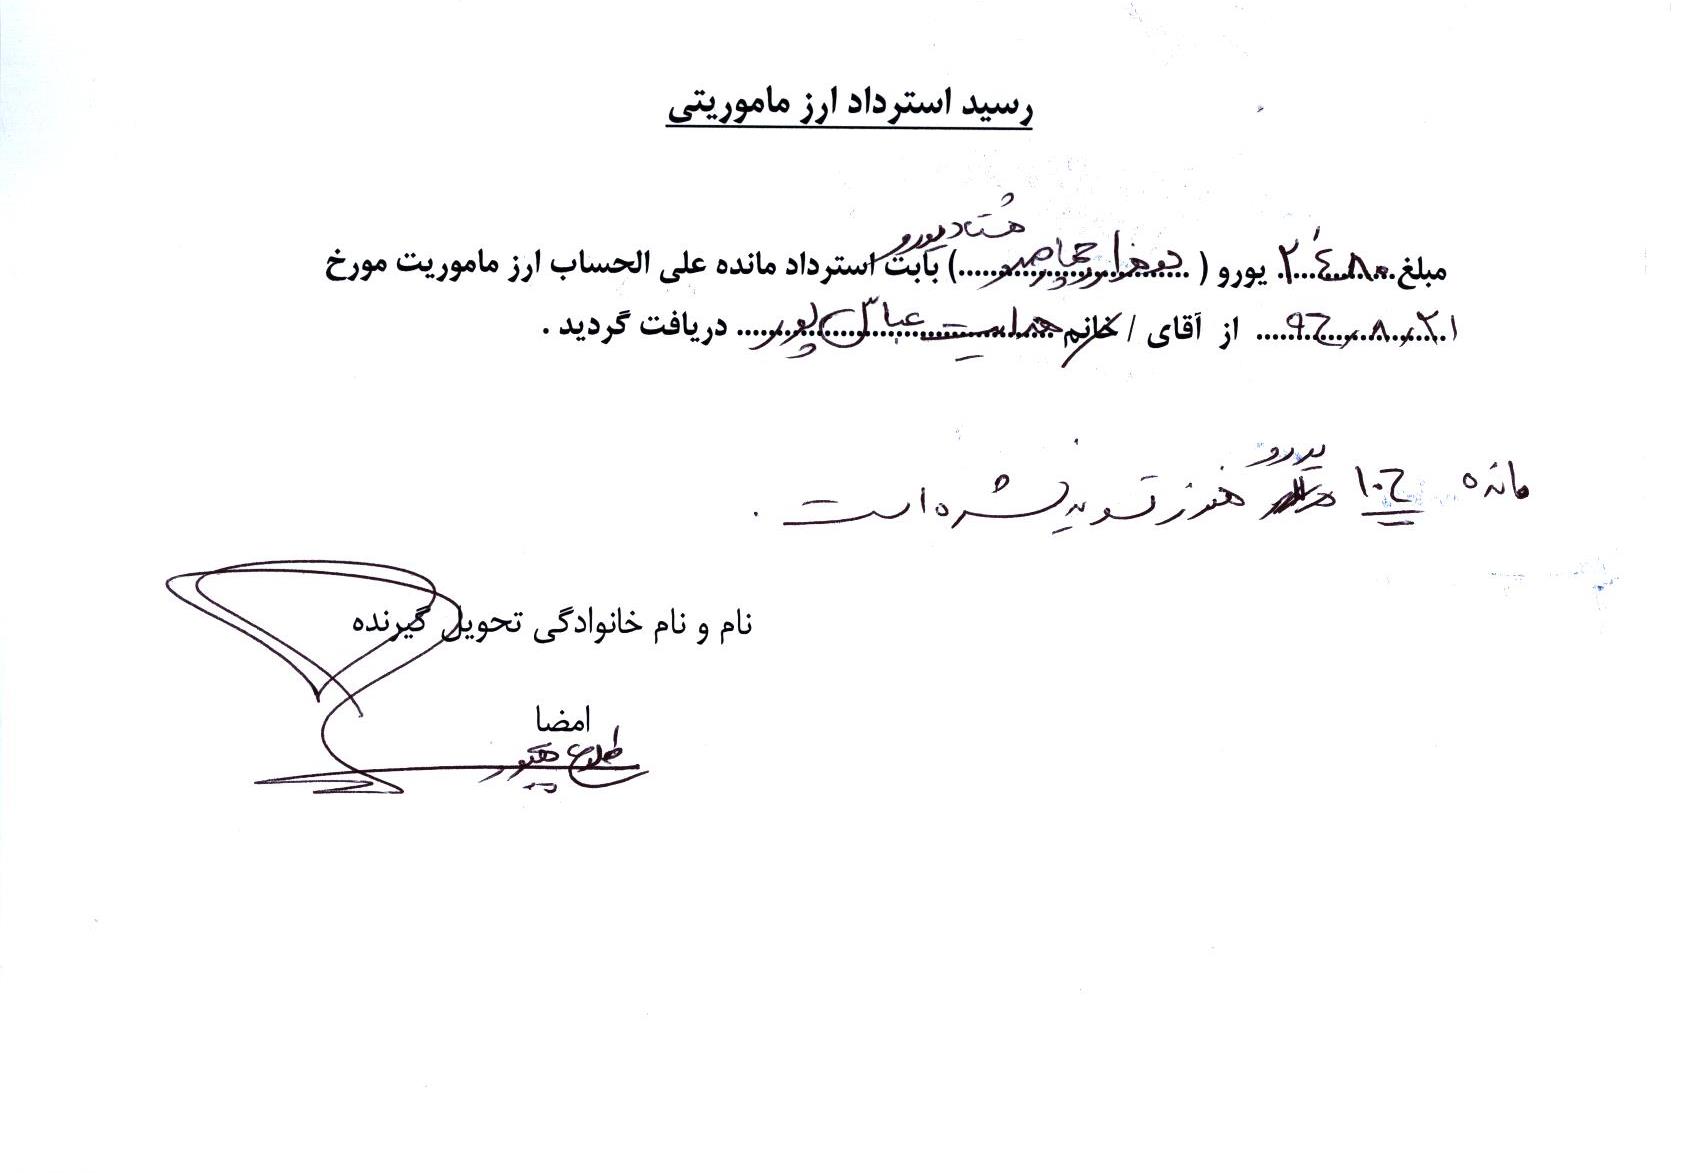 رسید استرداد ارز ماموریتی
مبلغ ۲٬۴۸۰ یورو ( دو هزار و چهارصد و هشتاد یورو ) بابت استرداد مانده علی الحساب ارز ماموریت مورخ
۹۶،۸،۲۱ از آقای / خانم هدایت عباس پور دریافت گردید .
مانده یورو هنوز تسویه نشده است .
نام و نام خانوادگی تحویل گیرنده
امضا